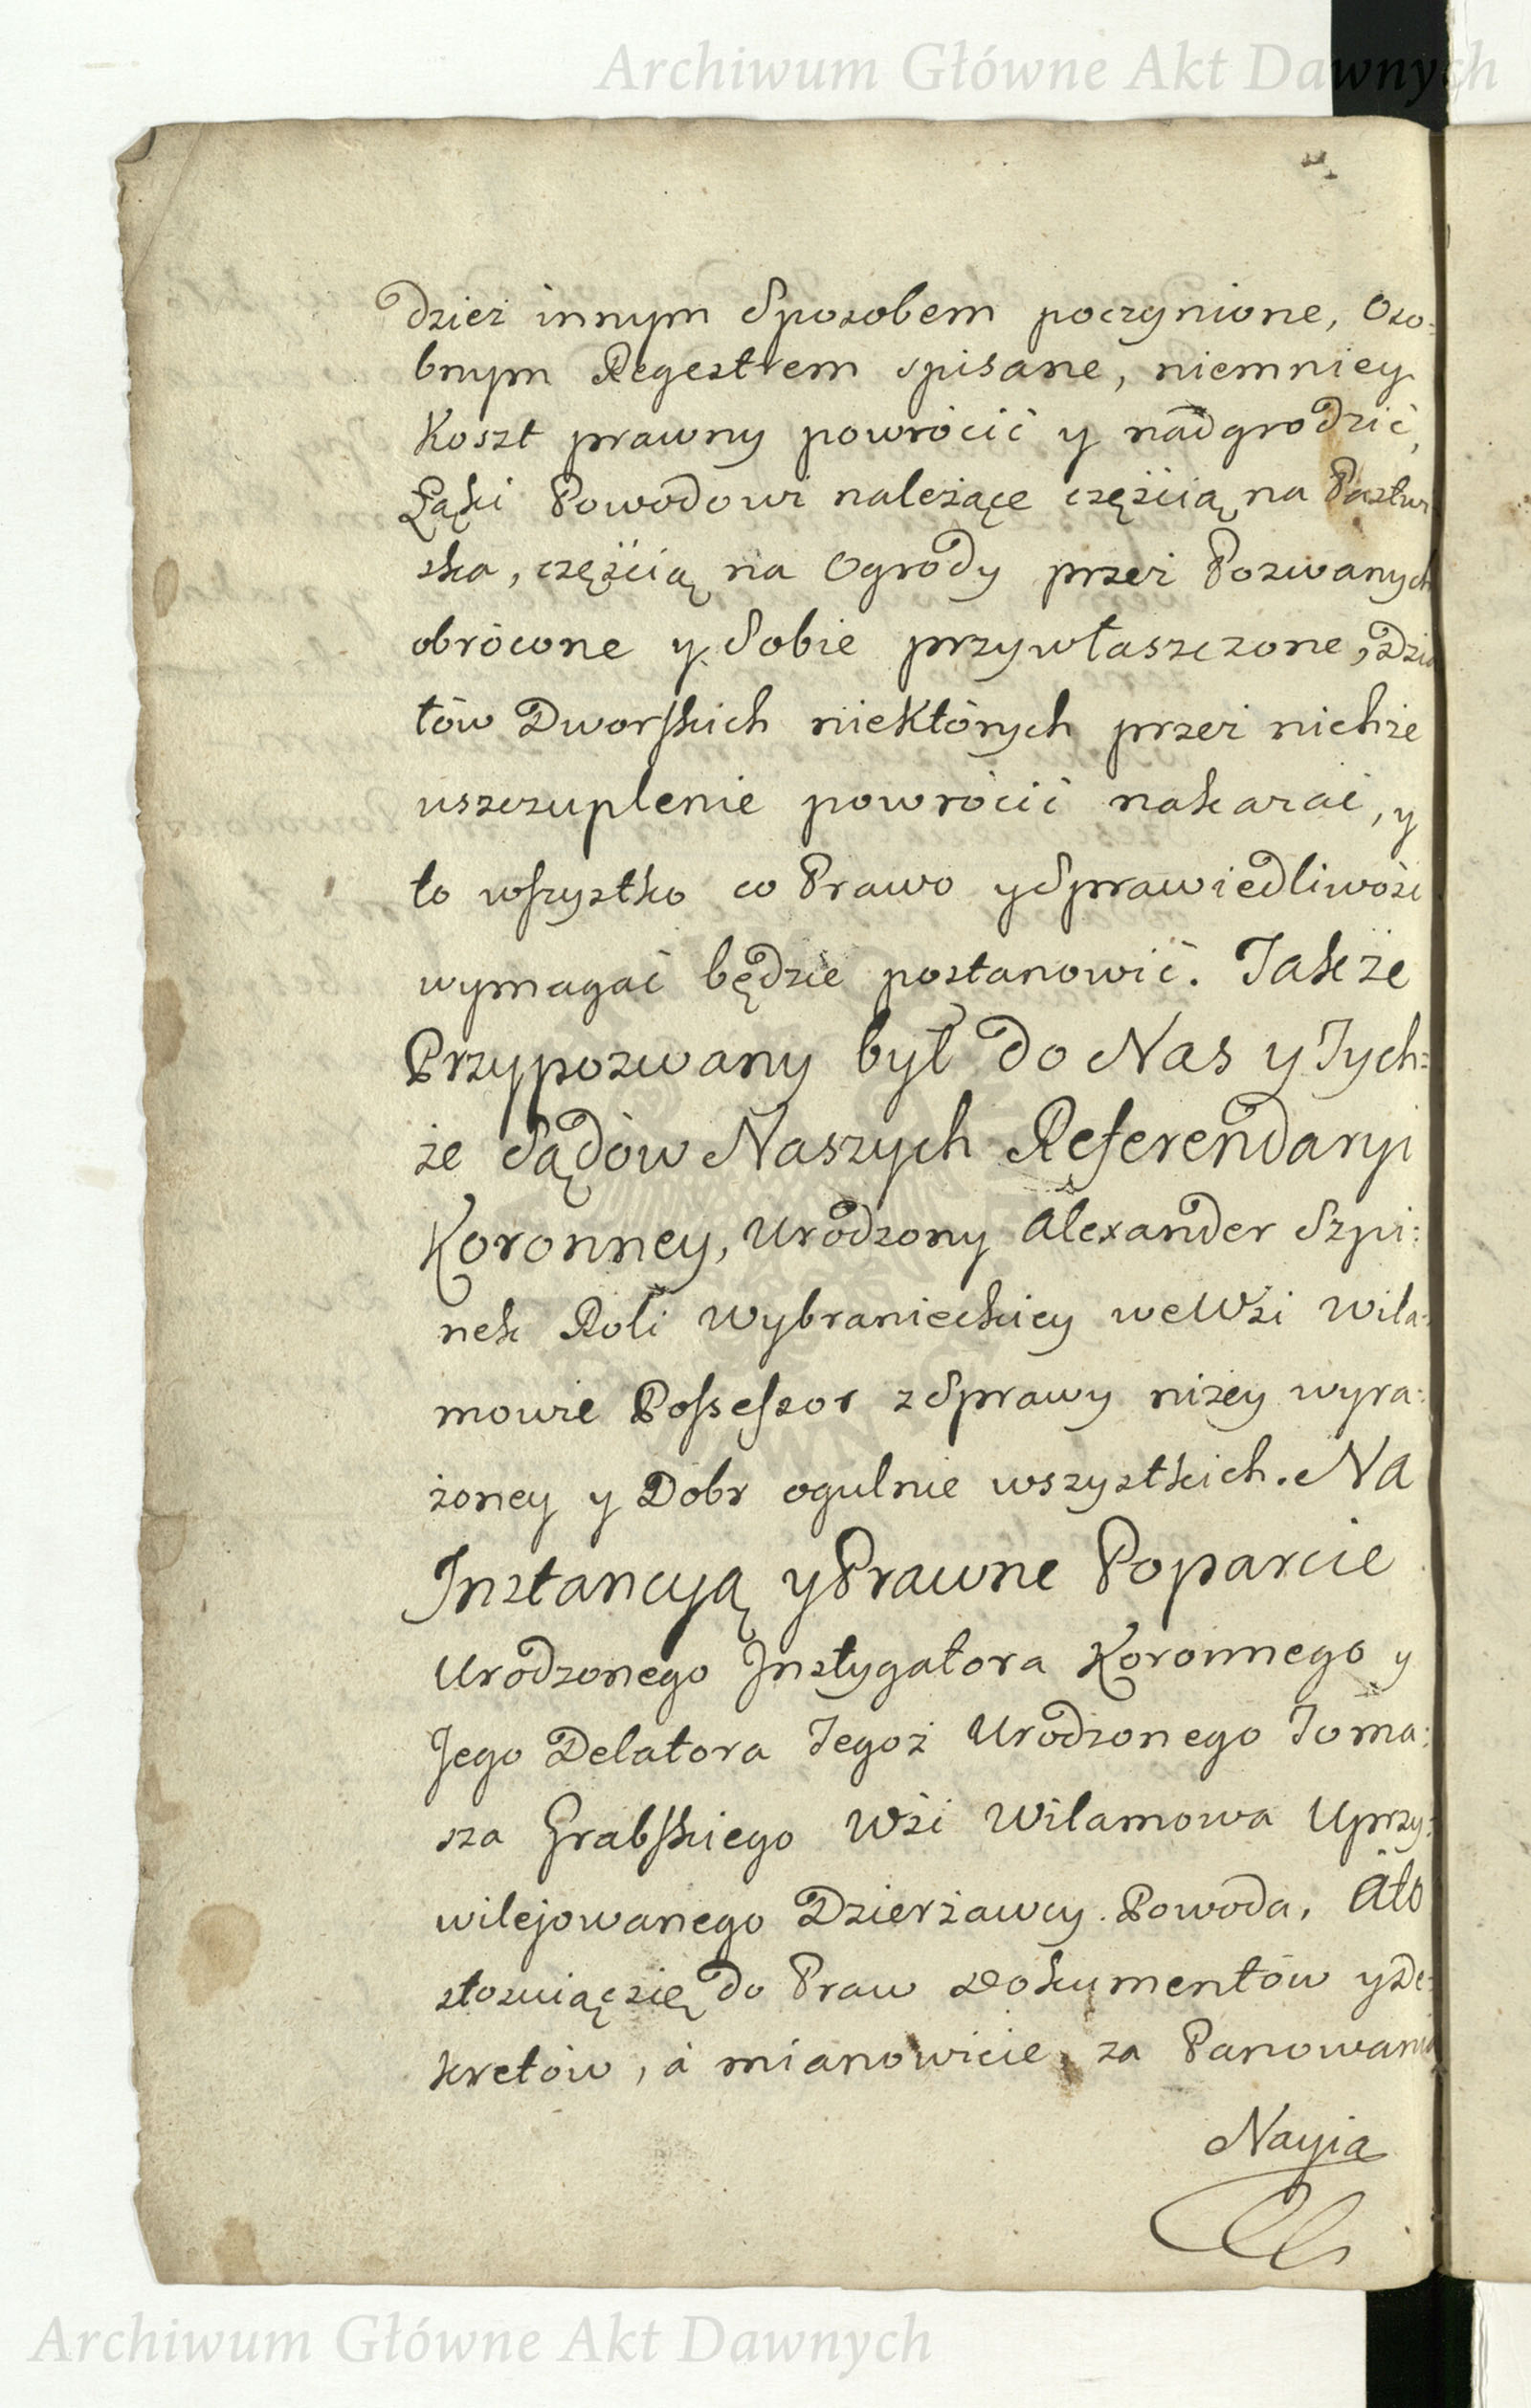 Archiwum Główne Akt Dawnych
dzież innym Sposobem poczynione, Oso=
bnym Regestrem spisane, niemniey
Koszt prawny powrócić y nadgrodzić,
Łąki Powodowi należące częścią na Pastwi
ska, częścią na Ogrody przez Pozwanych
obrócone y Sobie przywłaszczone, Dzia
łów Dworskich niektórych przez nichże
uszczuplenie powrócić nakazać, y
to wszystko co Prawo y Sprawiedliwość
wymagać będzie postanowić. Także
Przypozwany był do Nas y Tych=
że Sądów Naszych Referendaryi
Koronney, Urodzony Alexander Szpi:
nek Roli Wybranieckiey we Wsi Wila:
mowie Possessor z Sprawy niżey wyra:
żoney y Dobr ogulnie wszystkich. NA
Instancyą y Prawne Poparcie
Urodzonego Instygatora Koronnego y
Jego Delatora Tegoż Urodzonego Toma:
sza Grabskiego Wsi Wilamowa Uprzy:
wilejowanego Dzierżawcy Powoda, Ato
stosuiąc się do Praw Dokumentów y De:
kretów, á mianowicie, za Panowania
Nayia
Archiwum Główne Akt Dawnych